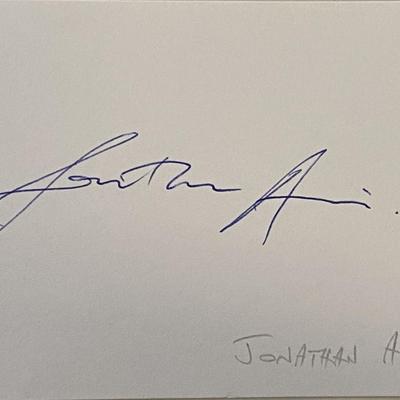 Jonathan
JONATHAN A